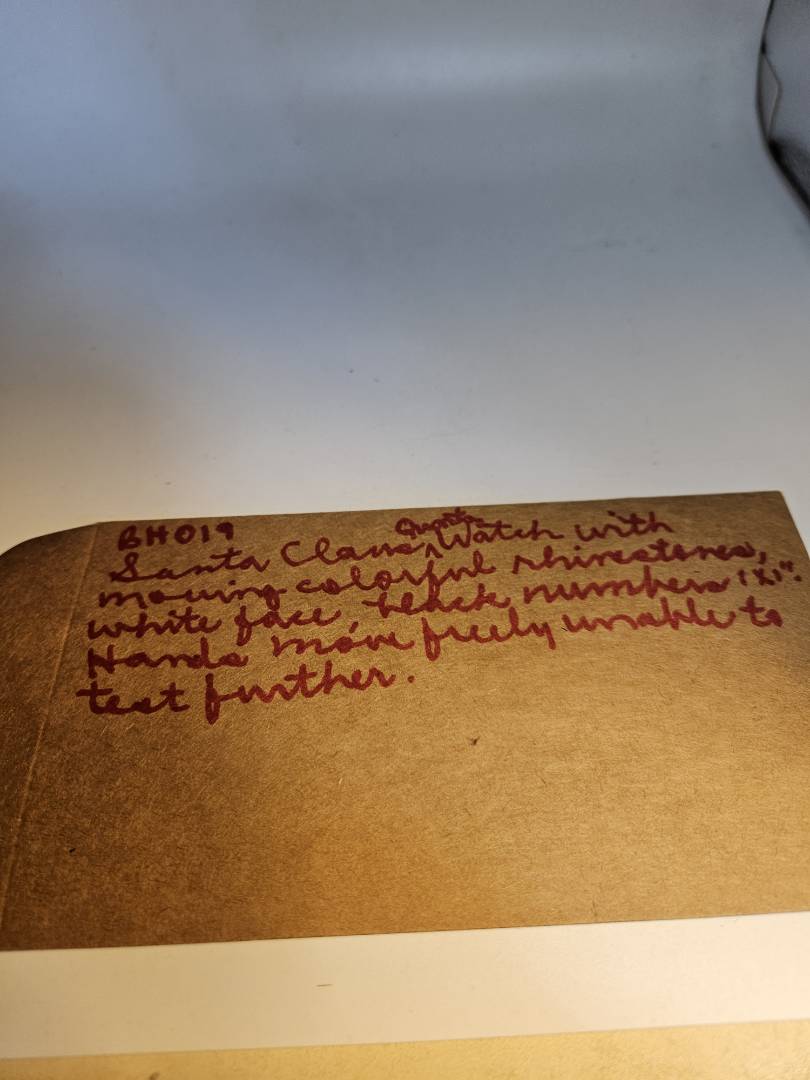 BH019
Quartz
Santa Claus ^ Watch with
moving colorful rhinestones,
white face, black numbers 1x1".
Hands move freely unable to
test further.